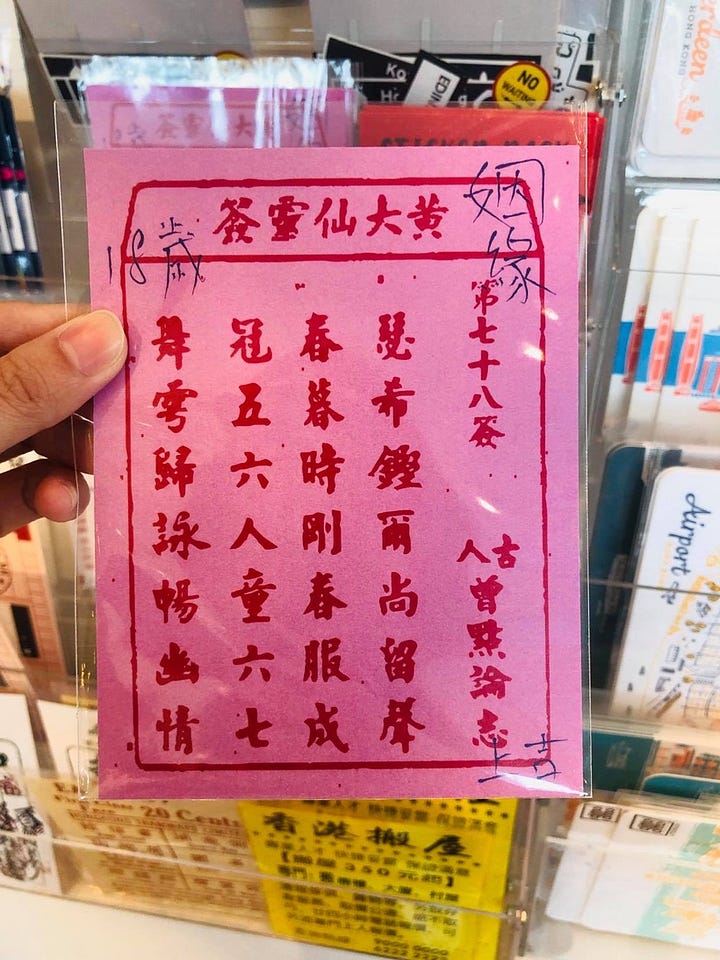 黄大仙靈簽
姻緣
18歲
第七十八簽
古人
曾點論志
上吉
瑟希鏗爾尚留聲
春暮時剛春服成
冠五六人童六七
舞雩歸詠暢幽情
NO
WAITING
HONG KONG
Airport
20 Cents
香港搬屋